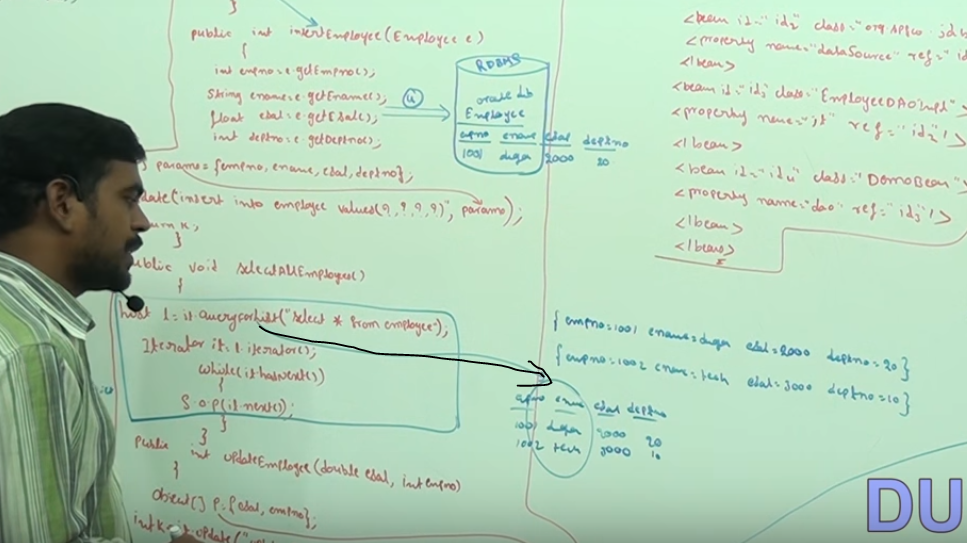 }
public int insertEmployee(Employee e)
{
int empno=e.getEmpno();
String ename=e.getEname();
float esal=e.getEsal();
int deptno=e.getDeptno();
params={empno, ename, esal, deptno};
date("insert into employee values(?,?,?,?)", params);
urn k;
}
public void selectAllEmployee()
{
l=jt.queryForList("select * from employee");
Iterator it=l.iterator();
while(it.hasNext())
{
S.o.p(it.next());
}
}
public int updateEmployee(double esal, int empno)
{
Object[] p={esal, empno};
int k=jt.update("
RDBMS
oracle db
Employee
empno ename esal deptno
1001 durga 2000 20
<bean id="id2" class="org.apache.
<property name="dataSource" ref="id
</bean>
<bean id="id3" class="EmployeeDAOImpl">
<property name="jt" ref="id2"/>
</bean>
<bean id="id4" class="DemoBean">
<property name="dao" ref="id3"/>
</bean>
</beans>
{empno=1001 ename=durga esal=2000 deptno=20}
{empno=1002 ename=tech esal=3000 deptno=10}
empno ename esal deptno
1001 durga 2000 20
1002 tech 3000 10
DU